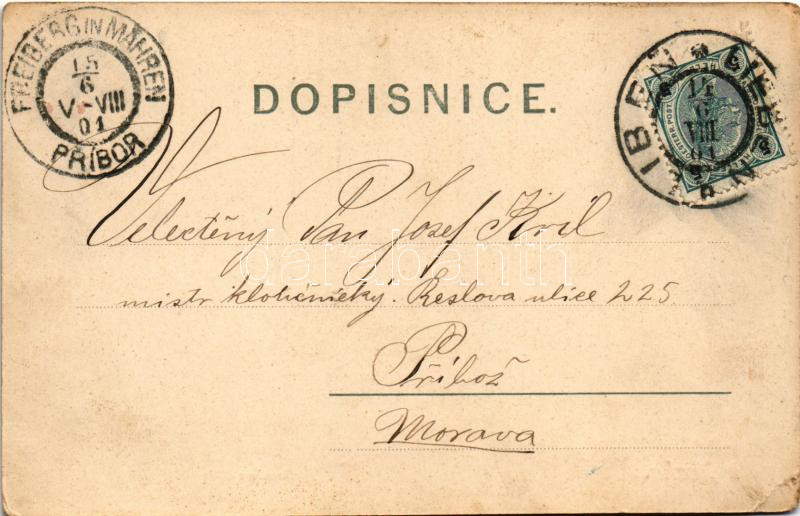 FREIBERG IN MÄHREN
15
6
V-VIII
01
PŘÍBOR
DOPISNICE.
LIBEN LIEBEN
14
6
VIII
01
Velectěný Pan Josef Kvil
mistr klobúčnický. Reslova ulice 225
Příboř
Morava
darabanth